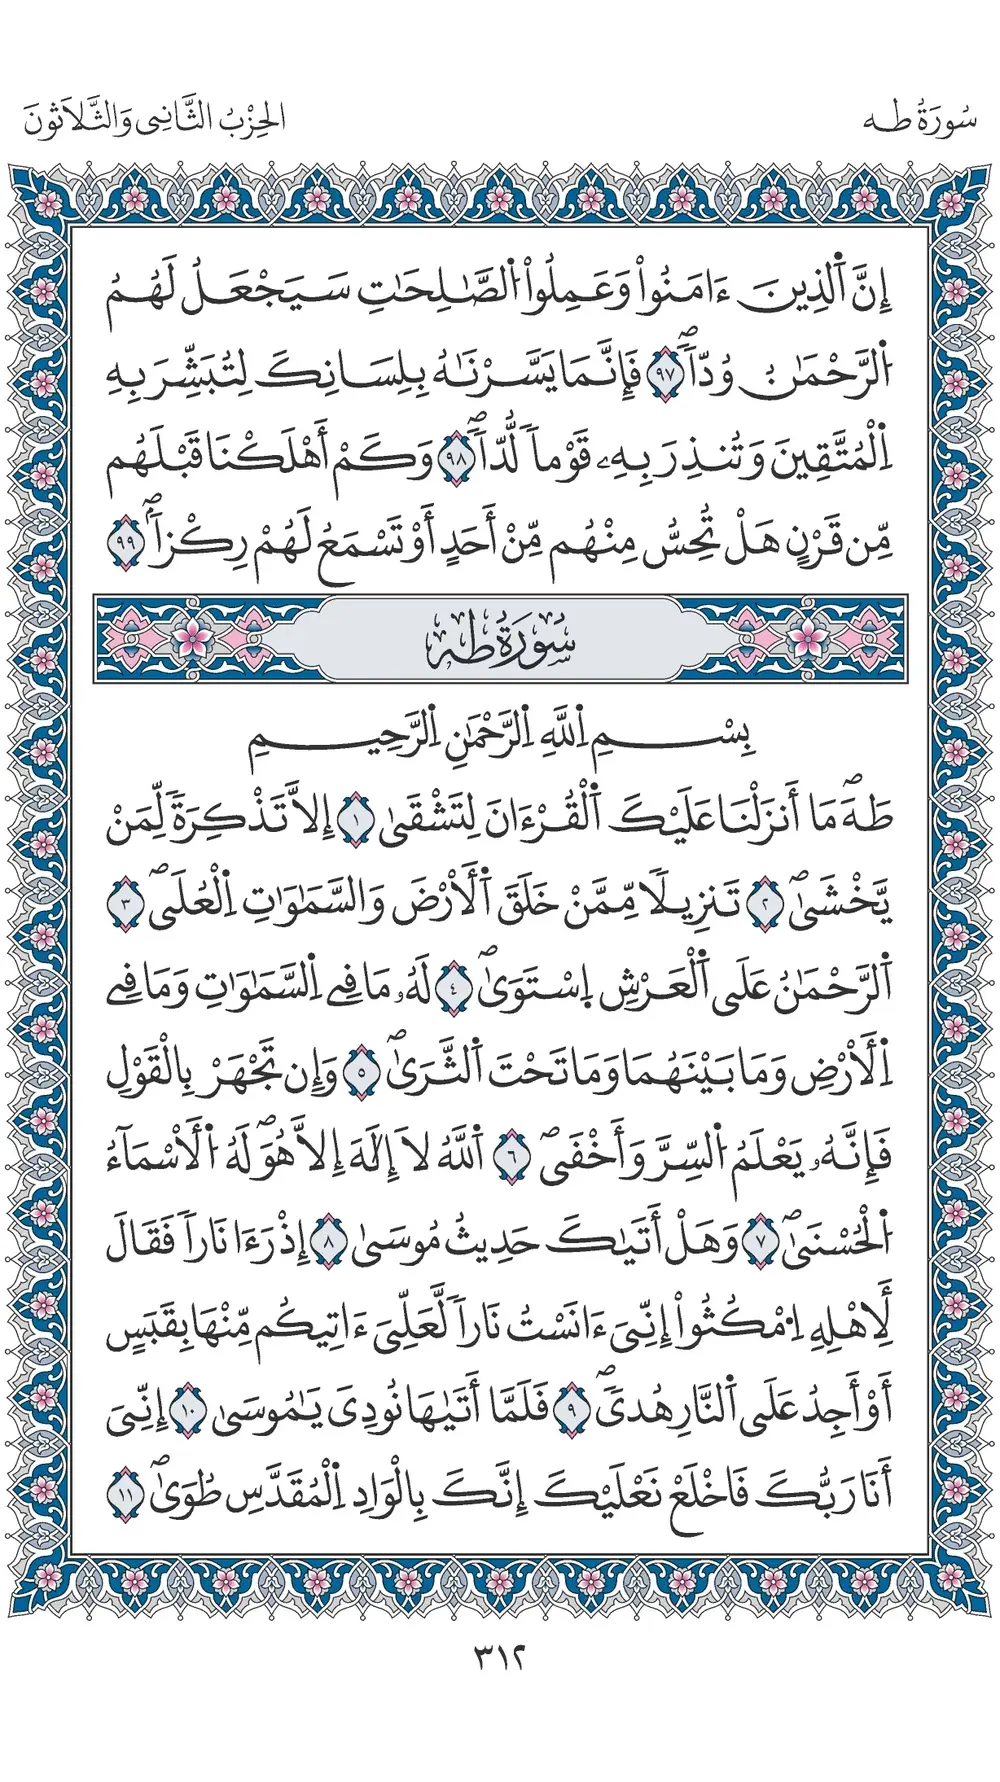 سُورَةُ طه
الحِزْبُ الثَّانِي وَالثَّلَاثُونَ
إِنَّ اَ۬لذِينَ ءَامَنُواْ وَعَمِلُواْ اُ۬لصَّٰلِحَٰتِ سَيَجْعَلُ لَهُمُ
اُ۬لرَّحْمَٰنُ وُدّاٗۖ ٩٧ فَإِنَّمَا يَسَّرْنَٰهُ بِلِسَانِكَ لِتُبَشِّرَ بِهِ
اِ۬لْمُتَّقِينَ وَتُنذِرَ بِهِۦ قَوْماٗ لُّدّاٗۖ ٩٨ وَكَمْ أَهْلَكْنَا قَبْلَهُم
مِّن قَرْنٍ هَلْ تُحِسُّ مِنْهُم مِّنْ أَحَدٍ أَوْ تَسْمَعُ لَهُمْ رِكْزاٗۖ ٩٩
سُورَةُ طه
بِسْمِ اِ۬للَّهِ اِ۬لرَّحْمَٰنِ اِ۬لرَّحِيمِ
طَهَۖ مَا أَنزَلْنَا عَلَيْكَ اَ۬لْقُرْءَانَ لِتَشْقَىٰ ١ إِلَّا تَذْكِرَةٗ لِّمَنْ
يَّخْشَىٰۖ ٢ تَنزِيلاٗ مِّمَّنْ خَلَقَ اَ۬لْأَرْضَ وَالسَّمَٰوَٰتِ اِ۬لْعُلَىۖ ٣
اَ۬لرَّحْمَٰنُ عَلَى اَ۬لْعَرْشِ اِ۪سْتَوَىٰۖ ٤ لَهُۥ مَا فِے اِ۬لسَّمَٰوَٰتِ وَمَا فِے
اِ۬لْأَرْضِ وَمَا بَيْنَهُمَا وَمَا تَحْتَ اَ۬لثَّرَىٰۖ ٥ وَإِن تَجْهَرْ بِالْقَوْلِ
فَإِنَّهُۥ يَعْلَمُ اُ۬لسِّرَّ وَأَخْفَىۖ ٦ اَ۬للَّهُ لَا إِلَٰهَ إِلَّا هُوَۖ لَهُ اُ۬لْأَسْمَآءُ
اُ۬لْحُسْنَىٰۖ ٧ وَهَلْ أَتَيٰكَ حَدِيثُ مُوسَىٰ ٨ إِذْ رَءَا نَاراٗ فَقَالَ
لِأَهْلِهِ اِ۟مْكُثُواْ إِنِّيَ ءَانَسْتُ نَاراٗ لَّعَلِّيَ ءَاتِيكُم مِّنْهَا بِقَبَسٍ
أَوْ أَجِدُ عَلَى اَ۬لنَّارِ هُدىٗۖ ٩ فَلَمَّا أَتَيٰهَا نُودِيَ يَٰمُوسَىٰ ١٠ إِنِّيَ
أَنَا رَبُّكَ فَاخْلَعْ نَعْلَيْكَ إِنَّكَ بِالْوَادِ اِ۬لْمُقَدَّسِ طُوَىٰۖ ١١
٣١٢